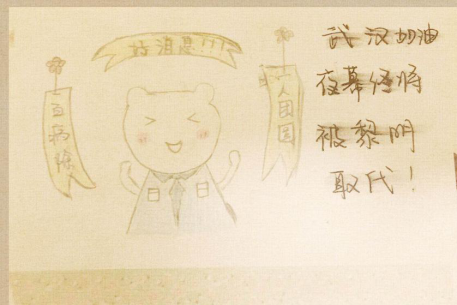 好消息!!!
百病
人团圆
武汉加油
夜幕终将
被黎明
取代！